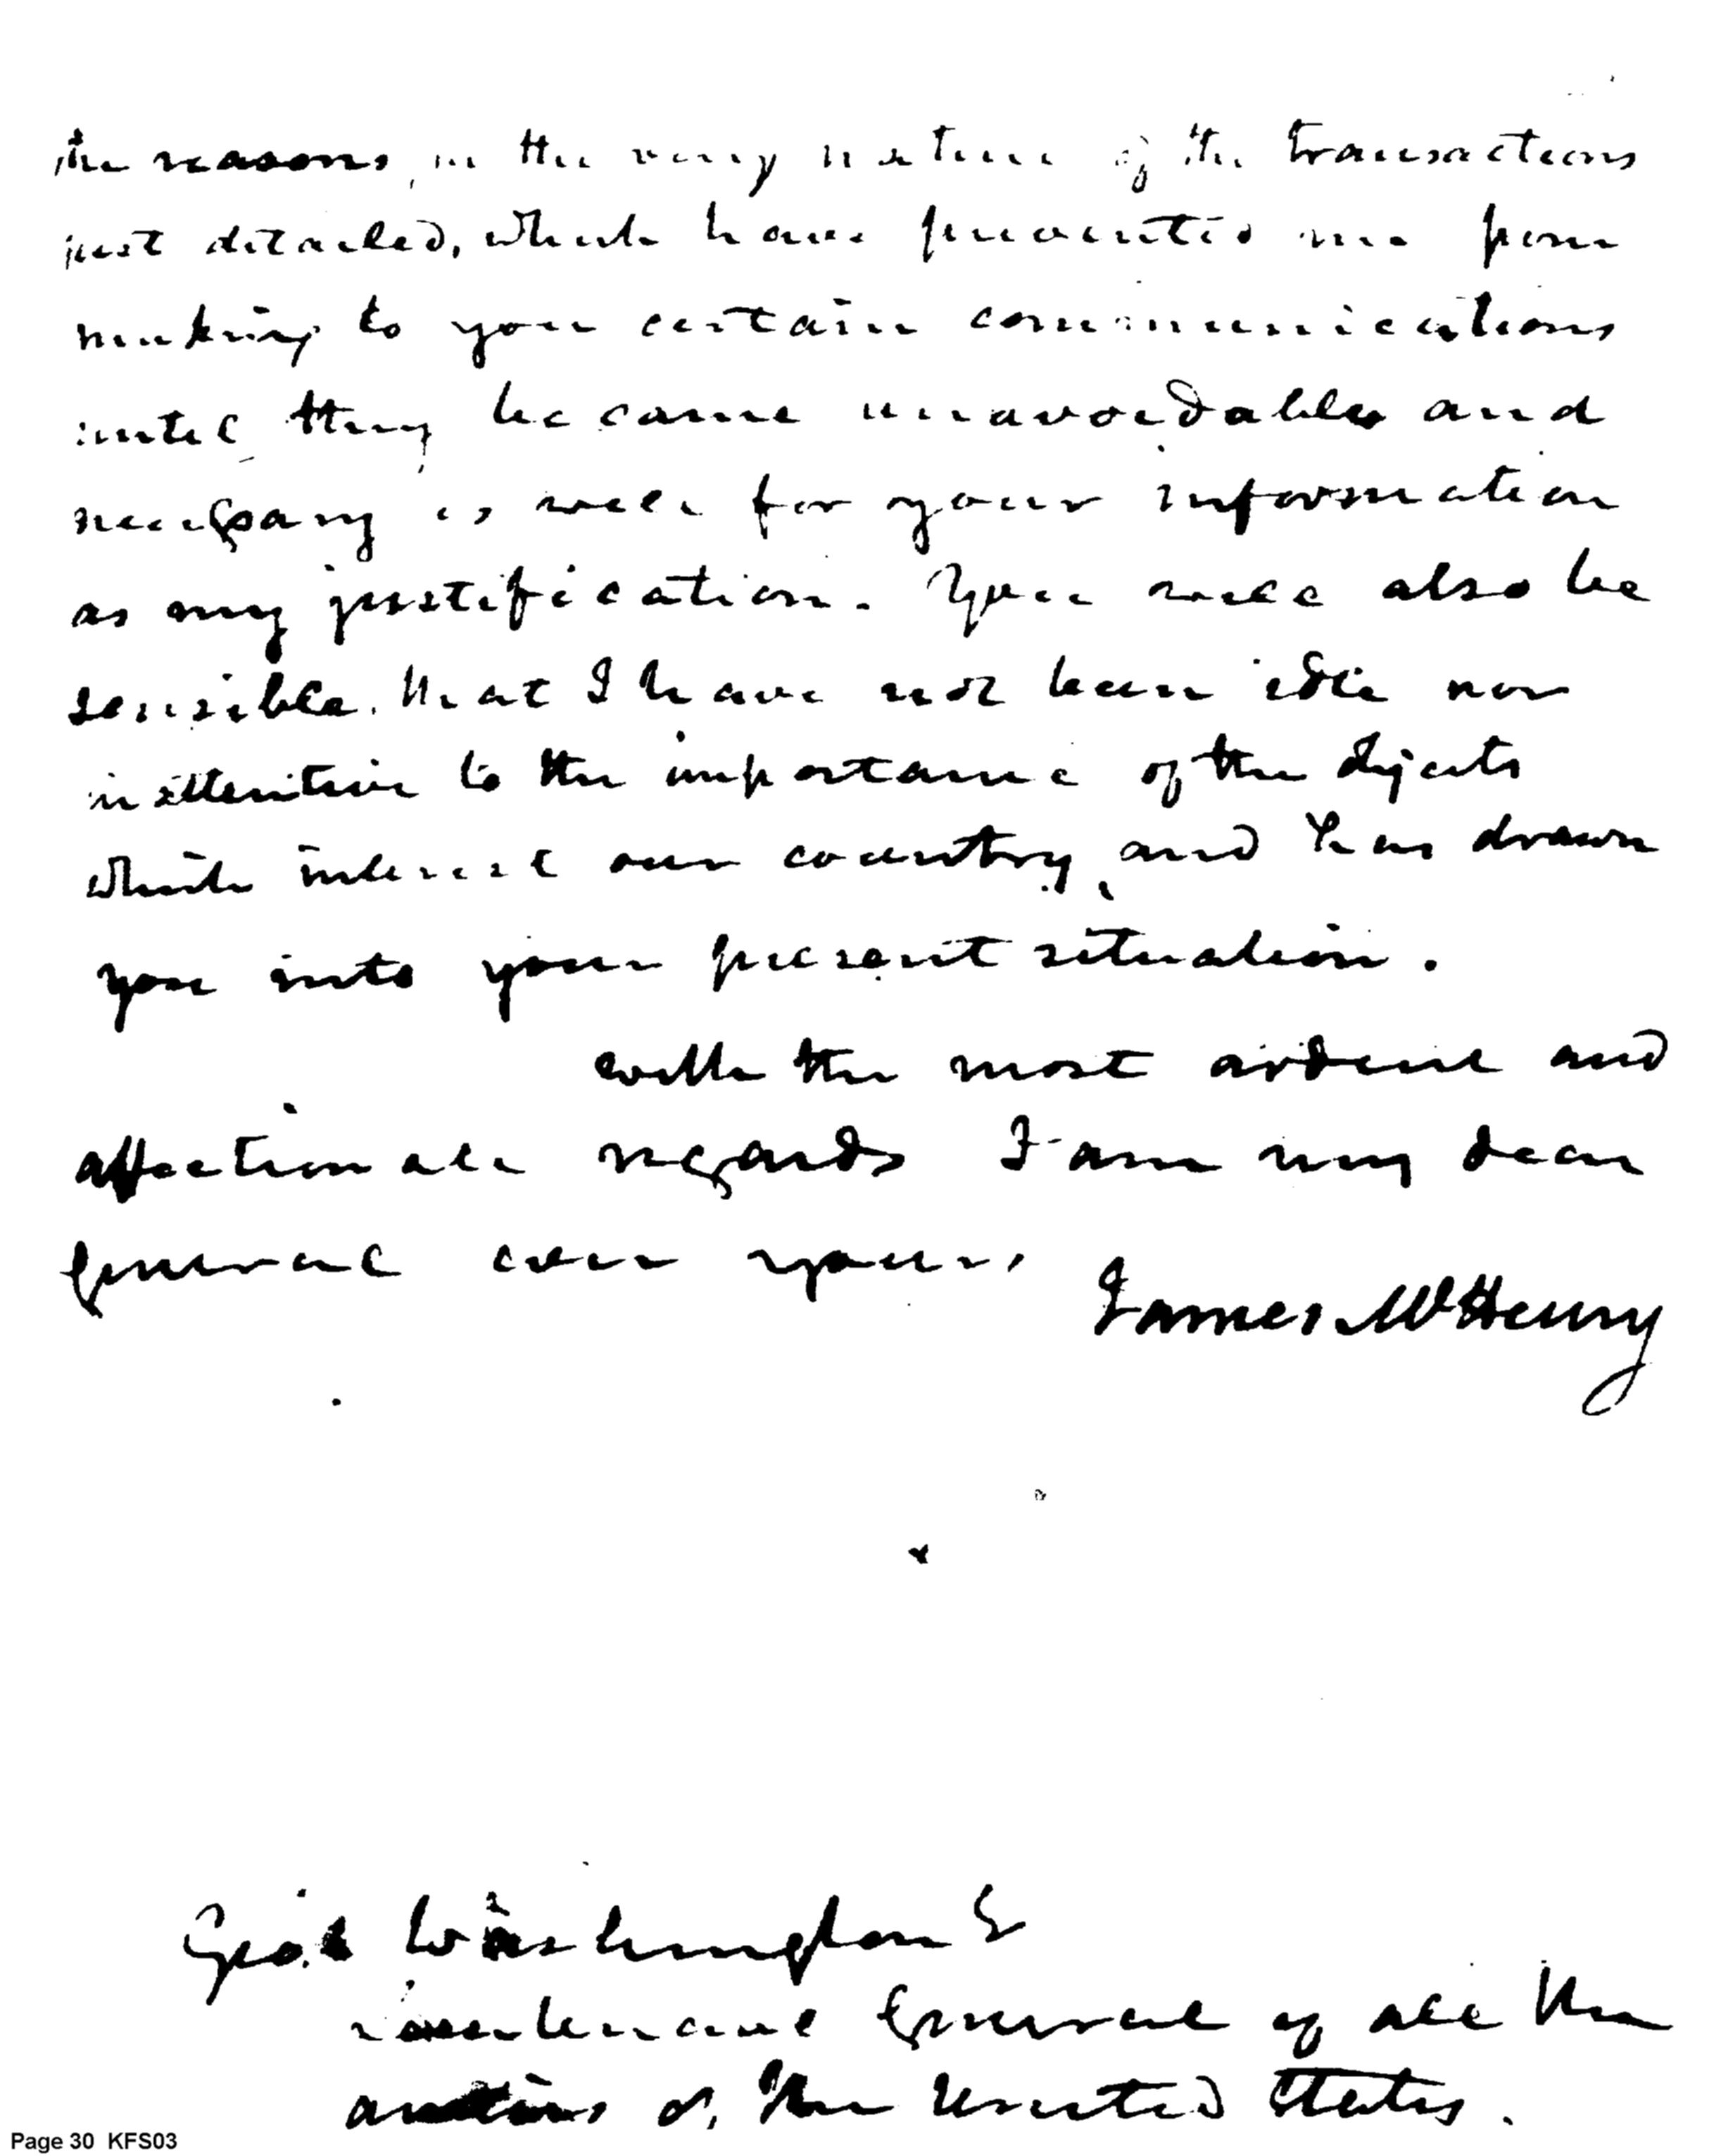 the reasons, in the very nature of the transactions
just detailed, which have prevented me from
making to you certain communications
until they became unavoidable and
necessary as well for your information
as my justification. You will also be
sensible, that I have not been idle nor
inattentive to the importance of the objects
which interest our country, and has drawn
you into your present situation.
with the most ardent and
affectionate regards I am my dear
General ever yours,
James McHenry
Geo. Washington
Lieutenant General of all the
armies of the United States.
Page 30 KFS03